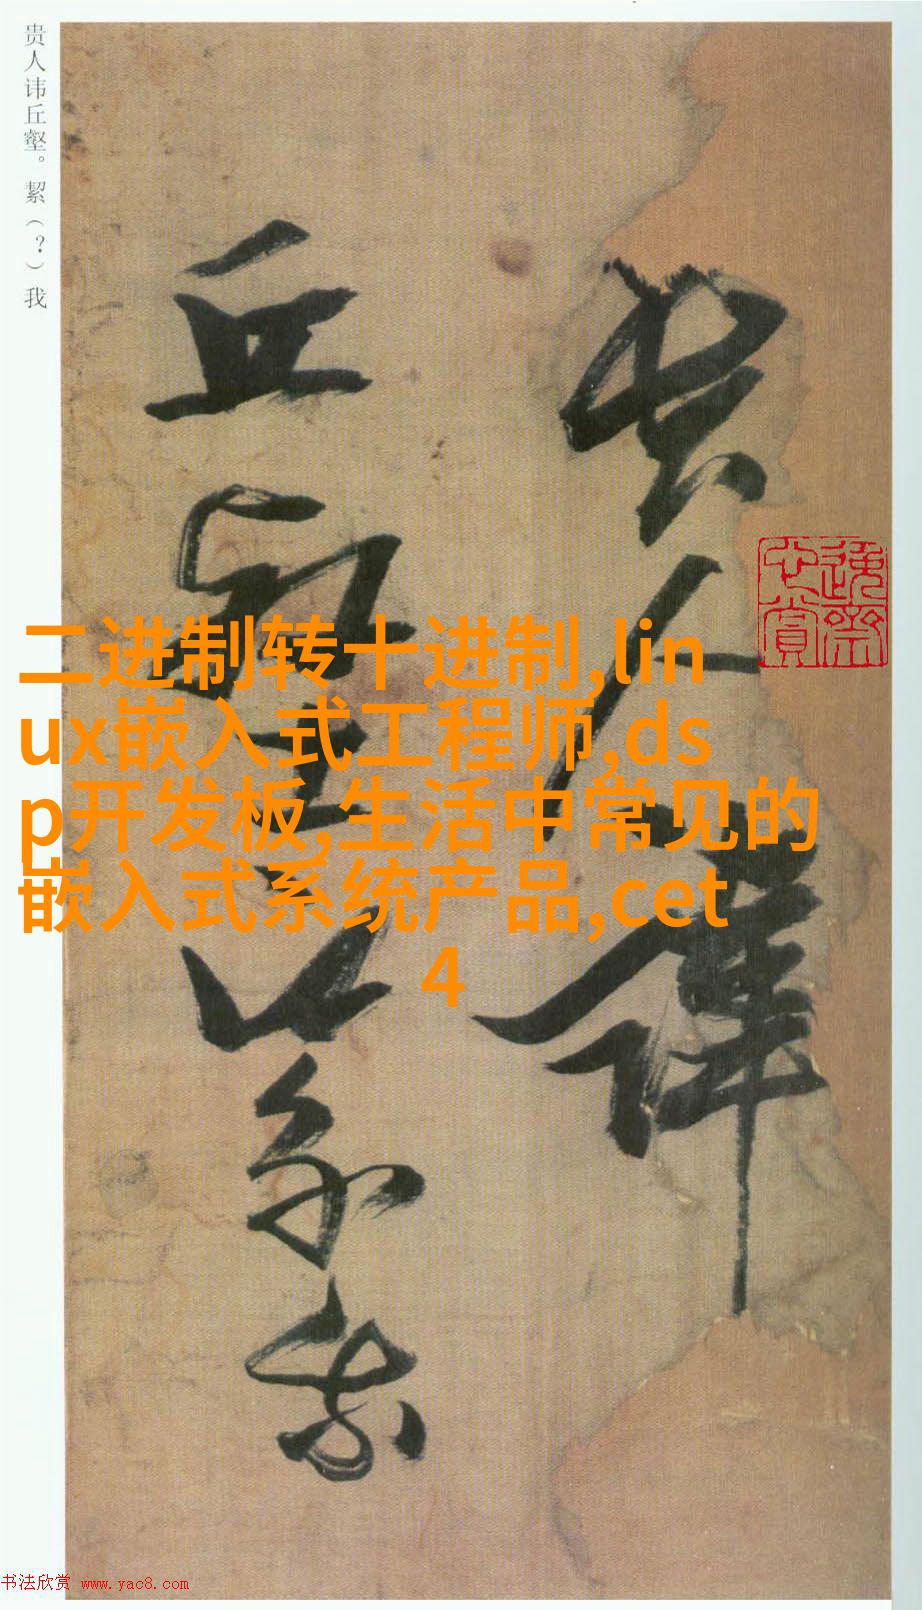 贵人讳丘壑。絜（？）我
贵人讳
丘壑。絜我
二进制转十进制,lin
ux嵌入式工程师,ds
p开发板,生活中常见的
嵌入式系统产品,cet
4
书法欣赏 www.yac8.com